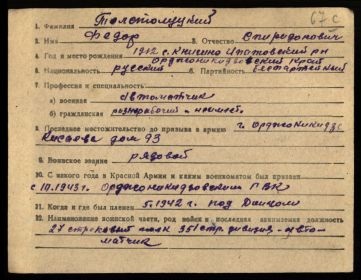 67 с
1. Фамилия Толстолуцкий
2. Имя Федор 3. Отчество Спиридонович
4. Год и место рождения 1912 с. Кнгино Ипатовский рн
Орджоникидзевский край
5. Национальность русский 6. Партийность беспартейный
7. Профессия и специальность
а) военная автоматчик
б) гражданская разнорабочий
8. Последнее местожительство до призыва в армию г. Орджоникидзе
дом 93
9. Воинское звание рядовой
10. С какого года в Красной Армии и каким военкоматом был призван
с 10.1943 г. Орджоникидзевским ГВК
11. Когда и где был пленен 5.1942 г. под
12. Наименование воинской части, род войск и последняя занимаемая должность
27 стрелковый полк 351 стр дивизия - авто-
матчик